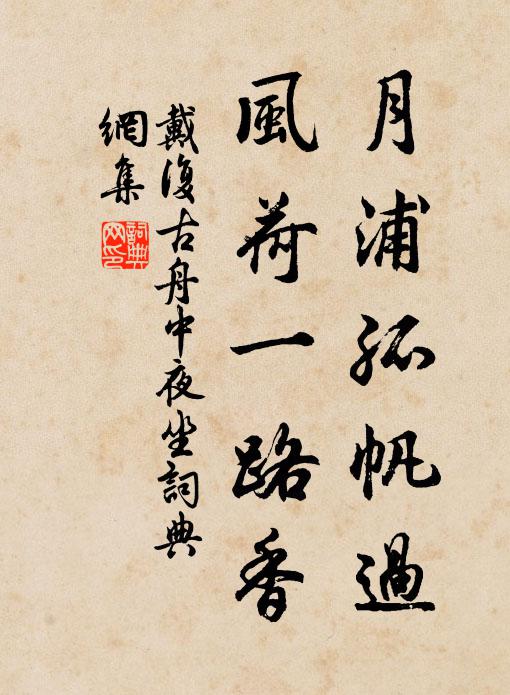 月浦孤帆過
風荷一路香
戴復古舟中夜坐詞典
網集
詞典
网印